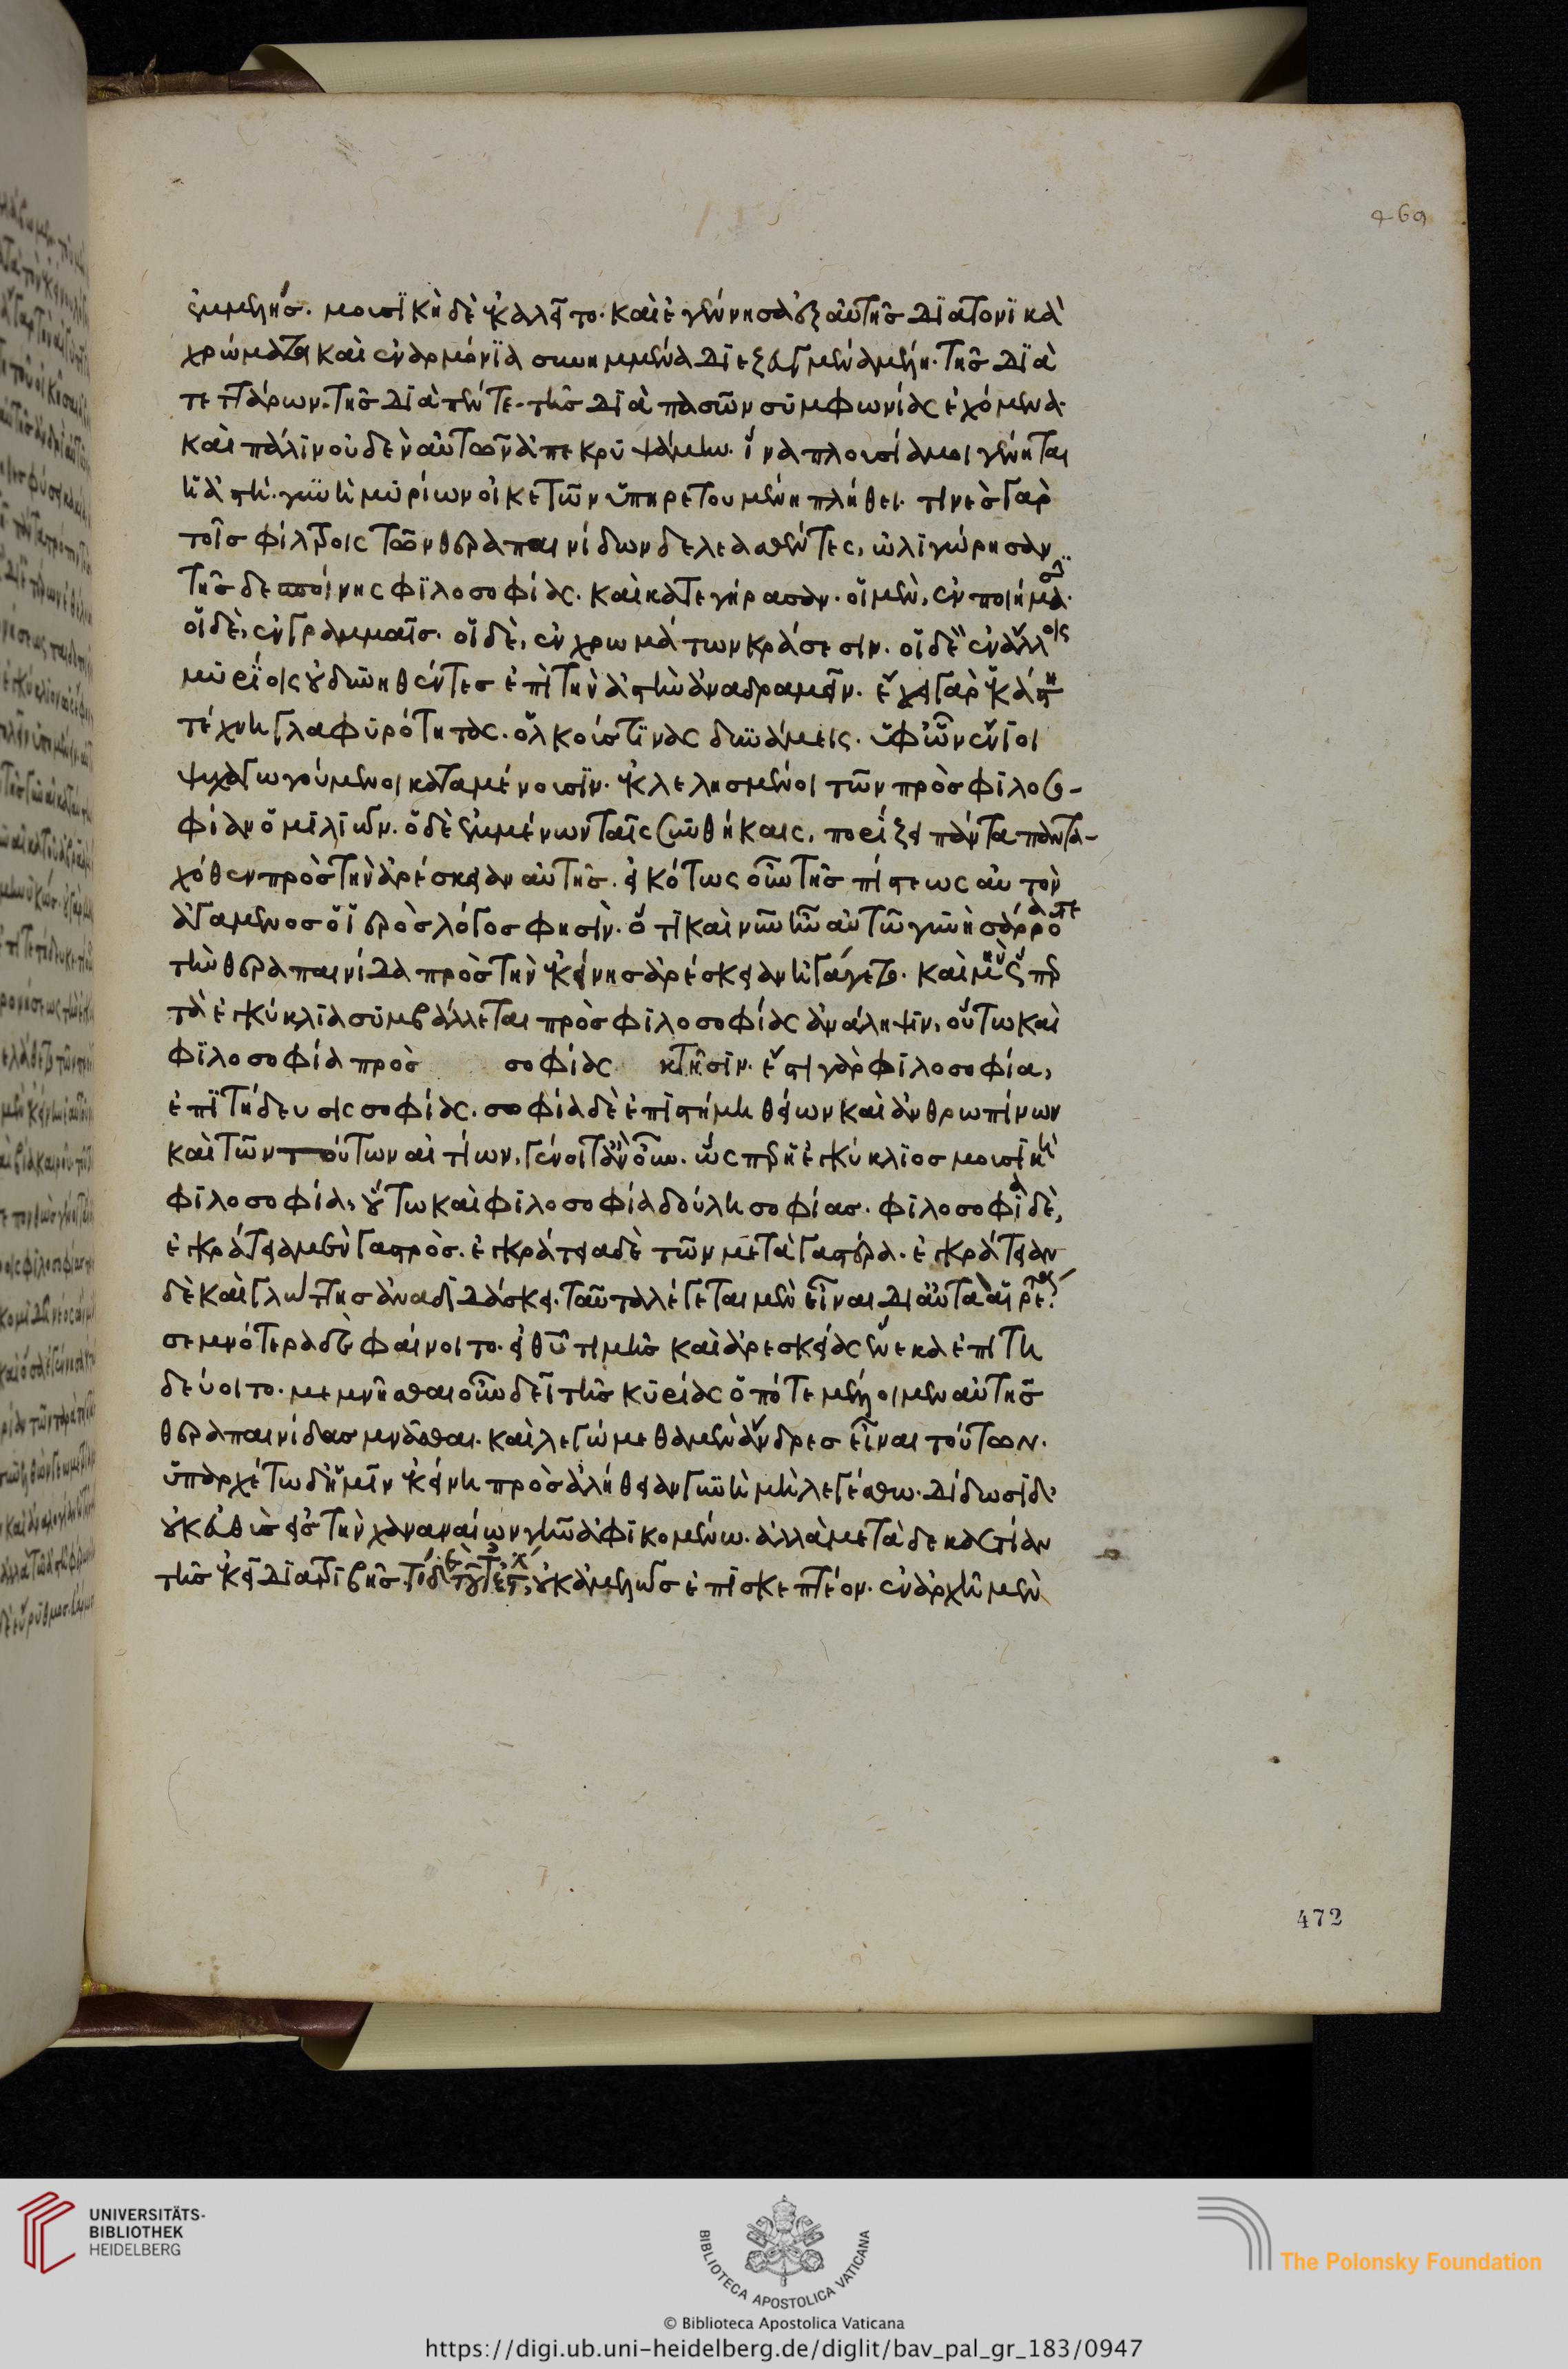 ἐμμελής. μουσϊκὴ δὲ ἐκαλεῖτο. καὶ ἐγέννησα ἐξ αὐτῆς διατονϊκὰ
χρώματα καὶ ἐναρμόνϊα συνημμένα διεζευγμένα μέλη. τῆς διὰ
τεττάρων. τῆς διὰ πέντε. τῆς διὰ πασῶν συμφωνίας ἐχόμενα.
καὶ πάλιν οὐδὲν αὐτῶν ἀπεκρυψάμην. ἵνα πλουσία μοι γένηται
ἡ ἀστή. γυνὴ μυρίων οἰκετῶν ὑπηρετουμένη πλήθει. τινὲς γὰρ
τοῖς φίλτροις τῶν θεραπαινίδων δελεασθέντες, ὠλιγώρησαν
τῆς δεσποίνης φιλοσοφίας. καὶ κατεγήρασαν. οἱ μὲν, ἐν ποιήμασι.
οἱ δὲ, ἐν γραμμαῖς. οἱ δὲ, ἐν χρωμάτων κράσεσιν. οἱ δὲ ἐν ἄλλοις
μυρίοις οὐ δυνηθέντες ἐπὶ τὴν ἀστὴν ἀναδραμεῖν. ἔχει γὰρ ἑκάστη
τέχνη γλαφυρότητας. ὁλκούς τινας δυνάμεις. ὑφ' ὧν ἔνϊοι
ψυχαγωγούμενοι καταμένουσϊν. ἐκλελησμένοι τῶν πρὸς φιλοσο-
φίαν ὁμιλιῶν. ὁ δὲ ἐμμένων ταῖς συνθήκαις, πορίζει πάντα παντα-
χόθεν πρὸς τὴν ἀρέσκειαν αὐτῆς. εἰκότως οὖν τῆς πίστεως αὐτὸν
ἀγάμενος ὁ ἱερὸς λόγος φησὶν. ὅτι καὶ νῦν ἦν αὐτῶ γυνὴ σάρρα ὅτε
τὴν θεραπαινίδα πρὸς τὴν ἐκείνης ἀρέσκειαν ἠγάγετο. καὶ μὴν ὥσπερ
τὰ ἐγκύκλϊα συμβάλλεται πρὸς φιλοσοφίας ἀνάληψϊν, οὕτω καὶ
φϊλοσοφία πρὸς σοφίας κτῆσιν. ἔστι γὰρ φιλοσοφία,
ἐπϊτήδευσις σοφίας. σοφία δὲ ἐπιστήμη θείων καὶ ἀνθρωπίνων
καὶ τῶν τούτων αἰτίων. γένοιτ' ἂν οὖν. ὥσπερ ἡ ἐγκύκλϊος μουσϊκὴ
φϊλοσοφία, οὕτω καὶ φιλοσοφία δούλη σοφίας. φϊλοσοφία δὲ,
ἐγκράτειαμ μὲν γαστρὸς. ἐγκράτεια δὲ τῶν μετὰ γαστέρα. ἐγκράτειαν
δὲ καὶ γλώττης ἀναδϊδάσκει. ταῦτα λέγεται μὲν εἶναι δι' αὐτὰ αἱρετὰ.
σεμνότερα δὲ φαίνοιτο. εἰ θεοῦ τιμῆς καὶ ἀρεσκείας ἕνεκα ἐπιτη
δεύοιτο. μεμνῆσθαι οὖν δεῖ τῆς κυρίας ὁπότε μέλλοιμεν αὐτῆς
θεραπαινίδας μνᾶσθαι. καὶ λεγώμεθα μὲν ἄνδρες εἶναι τούτων.
ὑπαρχέτω δ' ἡμῖν ἐκείνη πρὸς ἀλήθειαν γυνὴ μὴ λεγέσθω. δίδωσϊ δὲ
οὐκ εὐθὺς εἰς τὴν χαναναίων γῆν ἀφϊκομένω. ἀλλὰ μετὰ δεκαετίαν
τῆς ἐκεῖ διατρϊβῆς. τί δὲ τοῦτ' ἔστιν, οὐκ ἀμελῶς ἐπϊσκεπτέον. ἐν ἀρχῆ μὲν
469
472
UNIVERSITÄTS-
BIBLIOTHEK
HEIDELBERG
BIBLIOTECA APOSTOLICA VATICANA
The Polonsky Foundation
© Biblioteca Apostolica Vaticana
https://digi.ub.uni-heidelberg.de/diglit/bav_pal_gr_183/0947